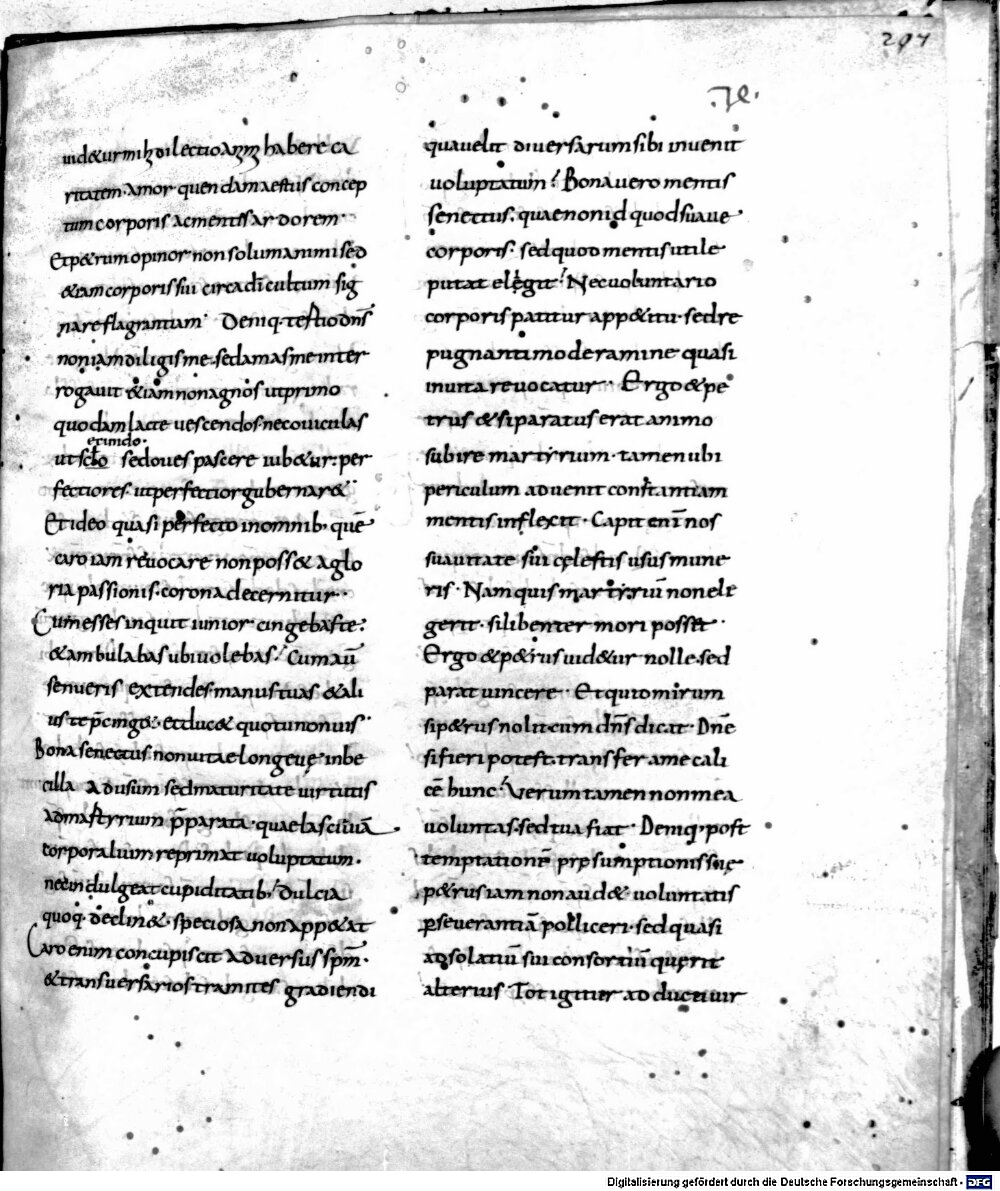 207
uidetur mihi dilectio animi habere ca
ritatem. amor quendam aestus concep
tum corporis ac mentis sardorem.
Et petrum opinor non solum animi sed
&iam corporis sui circa di cultum sig
nare flagrantiam. Deniq. tertio dns
non iam diligis me. sed amas me inter
rogauit &iam non agnos ut primo
quodam lacte uescendos. nec ouiculas
et undo.
ut sclo sed oues pascere iub&ur: per
fectiores. ut perfectior gubernar&.
Et ideo quasi perfecto in omnib; que
caro iam reuocare non poss& a glo
ria passionis. corona decernitur.
Cum esses inquit iunior cingebas te:
& ambulabas ubi uolebas. Cum au
senueris extendes manus tuas & ali
us te pcing&. et duc& quo tu non uis.
Bona senectus. non uitae longeue inbe
cilla ad usum sed maturitate uirtutis
ad martyrium pparata. quae lasciuia
corporalium reprimat uoluptatum.
nec indulgeat cupiditatib; Dulcia
quoq. declin&. speciosa non app&at
Caro enim concupiscit aduersus spm.
& transuersarios tramites gradiendi
qua uelit diuersarum sibi inuenit
uoluptatum. Bona uero mentis
senectus. quae non id quod suaue
corporis. sed quod mentis utile
putat elegit. Nec uoluntario
corporis patitur app&itu. sed re
pugnanti moderamine quasi
inuita reuocatur. Ergo & pe
trus & si paratus erat animo
subire martyrium. tamen ubi
periculum aduenit constantiam
mentis inflexit. Capit eni nos
suauitate sui celestis usus mune
ris. Nam quis martyriu non ele
gerit. si libenter mori posset.
Ergo & p&rus uid&ur nolle. sed
parat uincere. Et quid mirum
si p&rus nolit. cum dns dicat. Dne
si fieri potest. transfer a me cali
ce hunc. Verum tamen non mea
uoluntas. sed tua fiat. Deniq. post
temptatione presumptionis sue
p&rus iam non aud& uoluntatis
pseuerantia polliceri. sed quasi
ad solatiu sui consortiu querit
alterius Tot igitur adducuntur
Digitalisierung gefördert durch die Deutsche Forschungsgemeinschaft - DFG